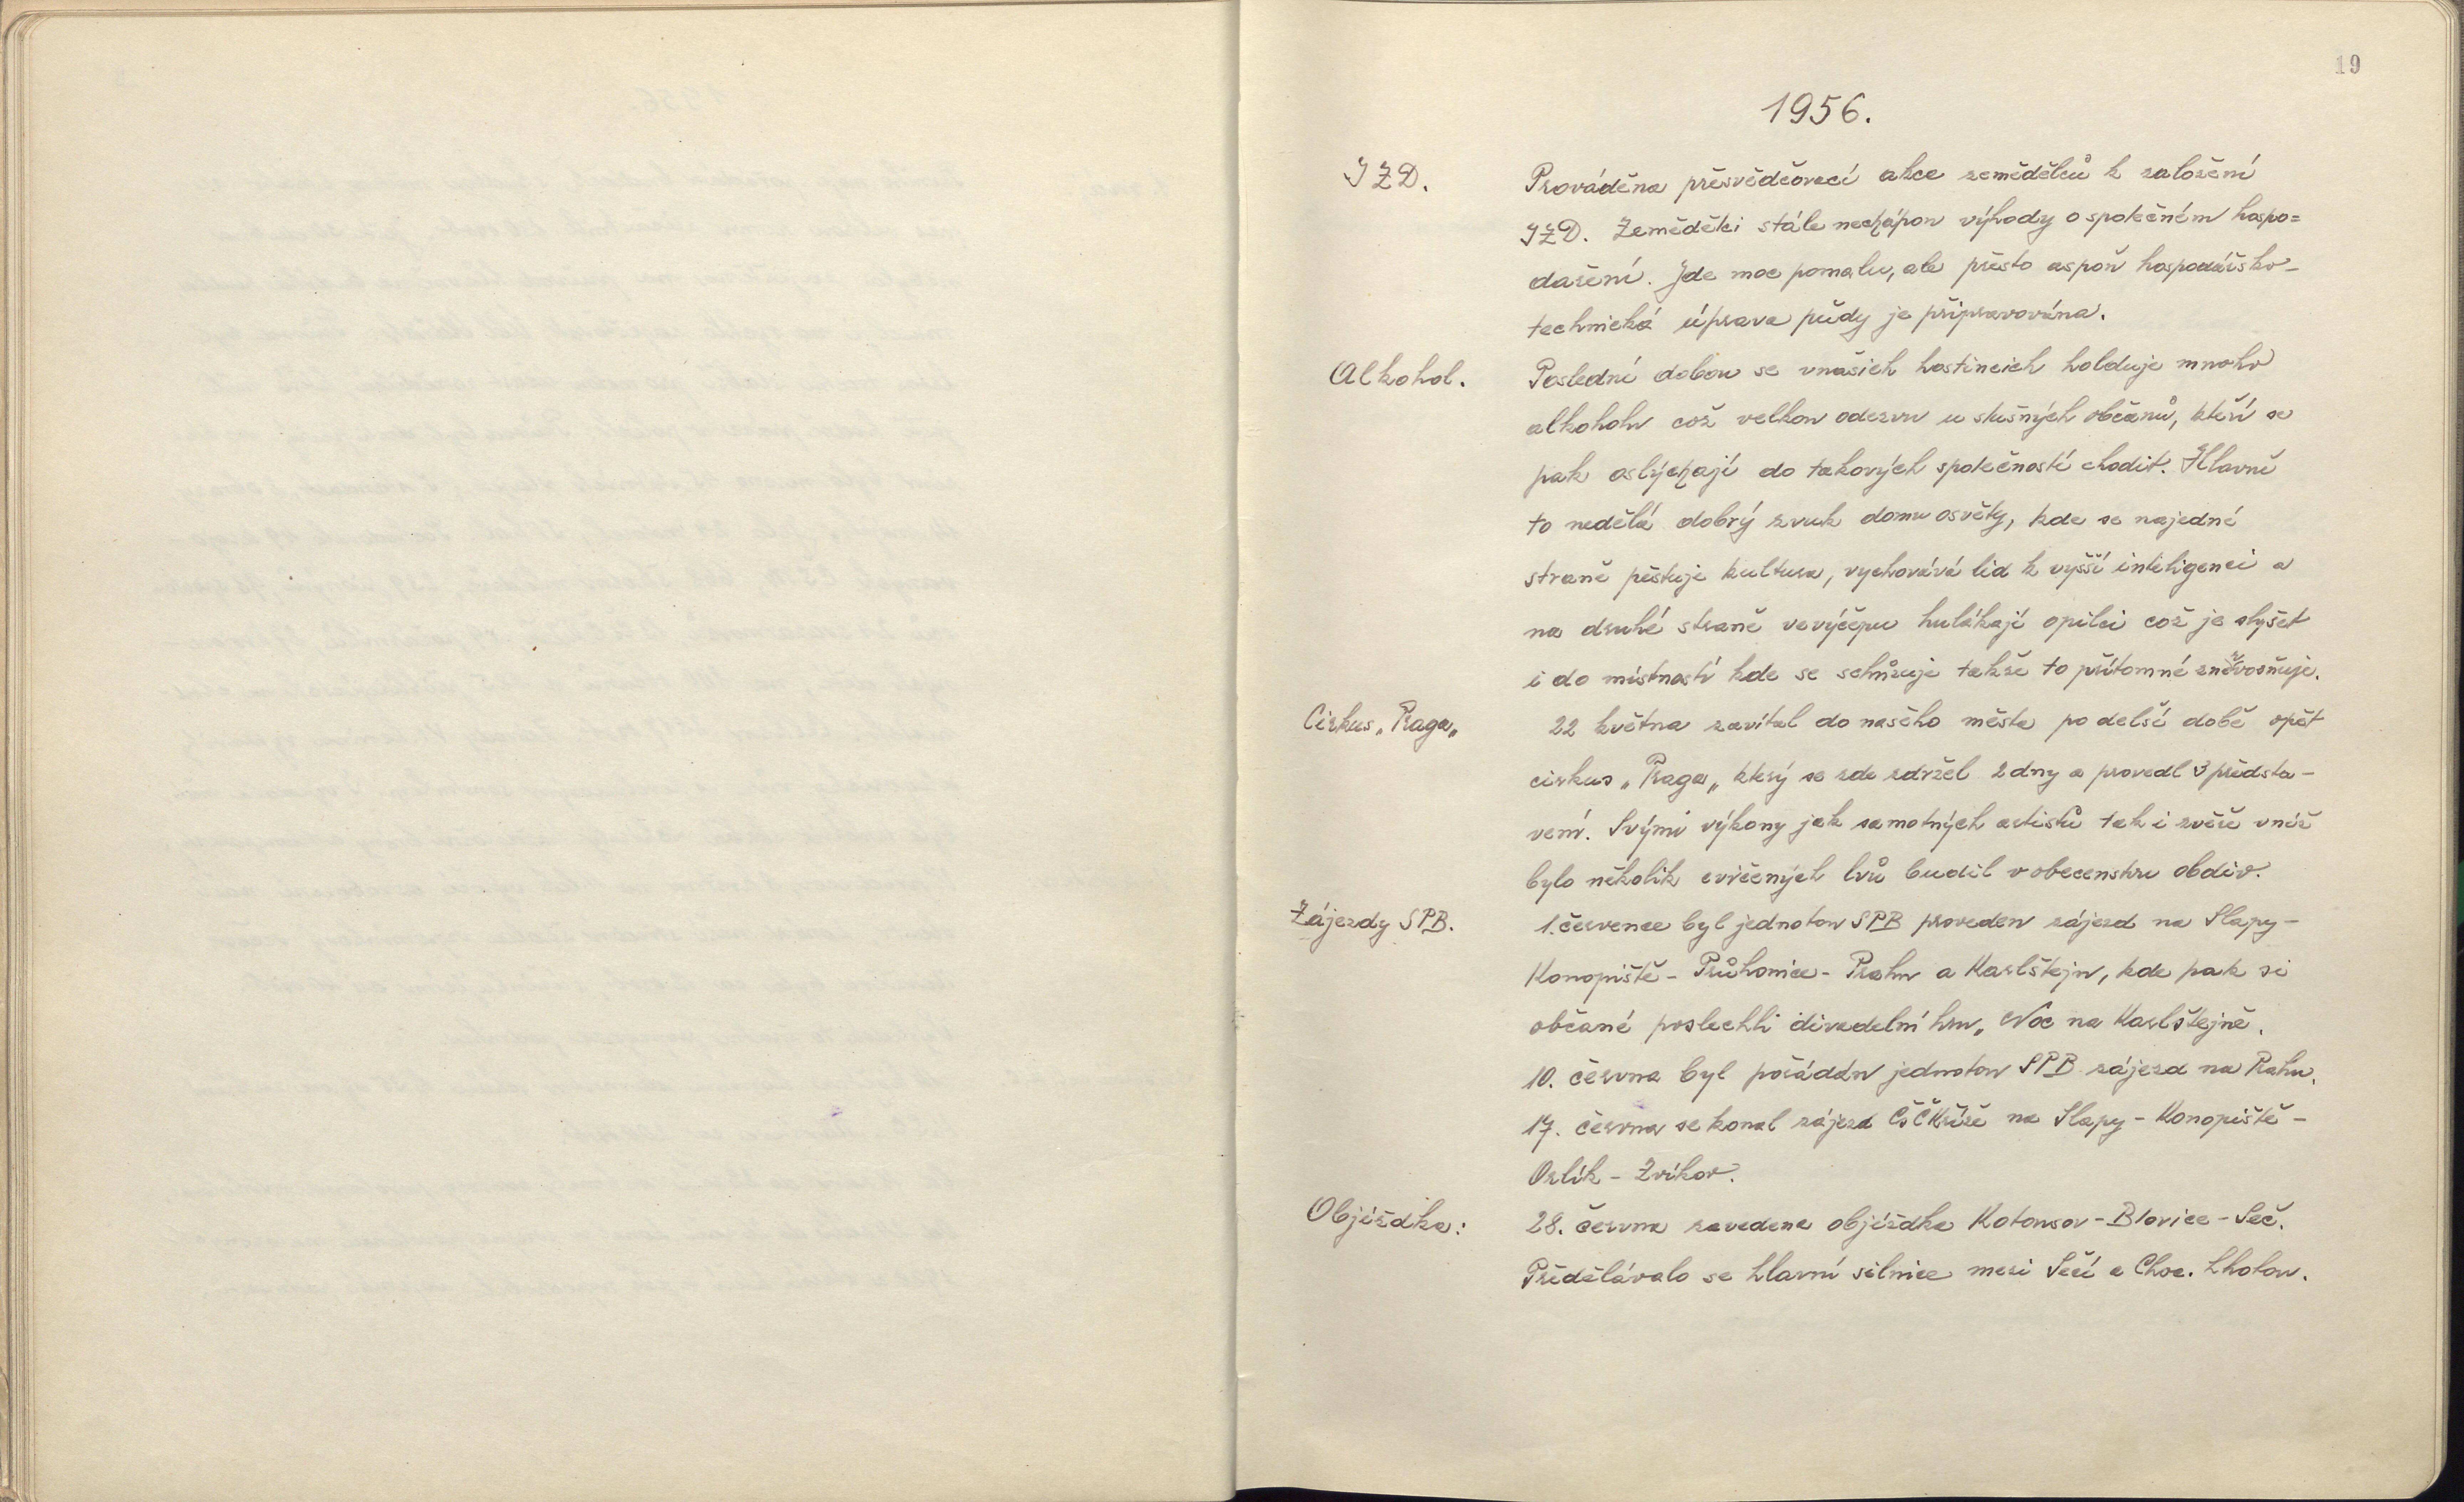 19
1956.
JZD. Prováděna přesvědčovací akce zemědělců k založení
JZD. Zemědělci stále nechápou výhody o společném hospo=
daření. Jde moc pomalu, ale přesto aspoň hospodářsko-
technická úprava půdy je připravována.
Alkohol. Poslední dobou se vnašich hostincích holduje mnoho
alkoholu což velkou odezvu u slušných občanů, kteří se
pak ostýchají do takových společností chodit. Hlavně
to nedělá dobrý zvuk domu osvěty, kde se najedné
straně pěstuje kultura, vychovává lid k vyšší inteligenci a
na druhé straně vevýčepu hulákají opilci což je slyšet
i do místností kde se schůzuje takže to přítomné znervosňuje.
Cirkus „Praga„ 22 května zavítal do našeho města po delší době opět
cirkus „Praga„ který se zde zdržel 2 dny a provedl 3 předsta-
vení. Svými výkony jak samotných artistů tak i zvěře vníž
bylo několik cvičených lvů budil v obecenstvu obdiv.
Zájezdy SPB. 1. července byl jednotou SPB proveden zájezd na Slapy-
Konopiště - Průhonice - Prahu a Karlštejn, kde pak si
občané poslechli divadelní hru „Noc na Karlštejně.
10. června byl pořádán jednotou SPB zájezd na Prahu.
17. června se konal zájezd ČSČKříže na Slapy - Konopiště -
Orlík - Zvíkov.
Objížďka: 28. června zavedena objížďka Kotousov - Blovice - Seč.
Předělávalo se hlavní silnice mezi Sečí a Choc. Lhotou.